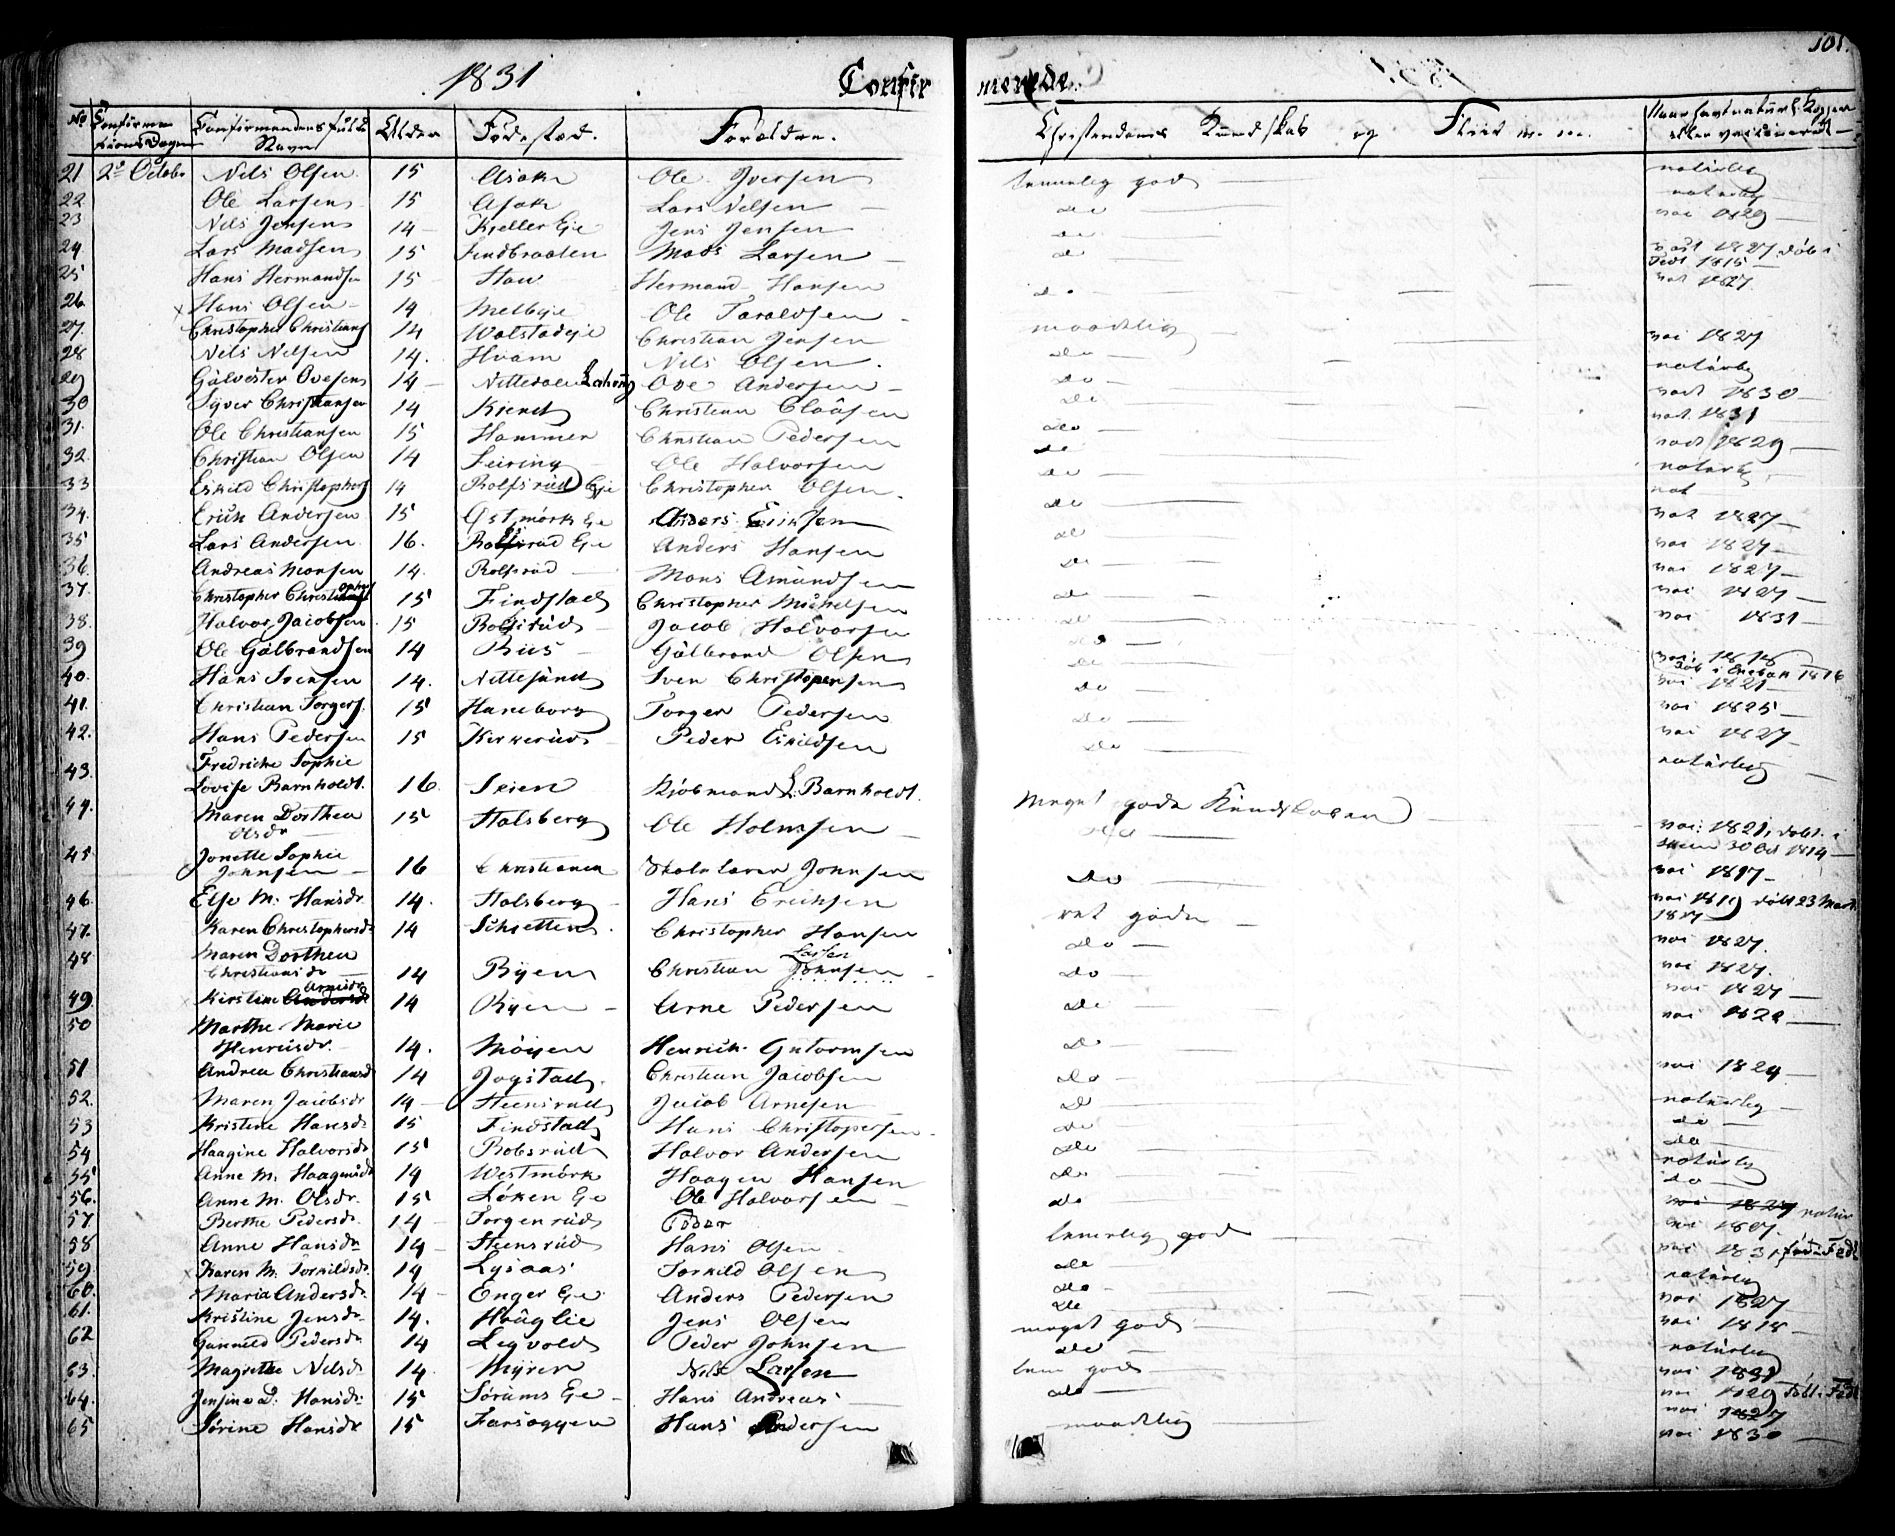 1831 Confir merede. 101.
No Confirmationens Dagen Confirmandens fulde Navn Alder Fødested. Forældre. Christendoms Kundskab og Flid m. m. Naar havt naturl. Kopper eller vaccineret
21 2d October Nils Olsen 15 Asak Ole Iversen temmelig god naturlig
22 Ole Larsen 15 Asak Lars Nilsen do naturlig
23 Nils Jensen 14 Kieller Eje Jens Jensen do vac 1829
24 Lars Madsen 15 Findbraaten Mads Larsen do vact 1827 døbt i
Fedt 1815
25 Hans Hermandsen 15 Hermand Hansen do vat 1827
26 × Hans Olsen 14 Melbye Ole Taraldsen maadelig
27. Christopher Christians 14 Wolstadeje Christian Jensen vac 1827
28 Nils Nilsen 14. Hvam Nils Olsen. do naturlig
29 Gulvester Ovesen 14 Nittedalen Ove Andersen do vact 1830
30 Syver Christiansen 14 Kiend Christian Claüsen do vact 1831
31. Ole Christiansen 15 Hammer Christian Pedersen do vact 1829
32. Christian Olsen 14 Leiring Ole Halvorsen do naturlig
33 Eskild Christophers 14 Rolfsrud Eje Christopher Olsen. do vat
34. Erich Andersen 15 Østmørk Eje Anders Erichsen do vat 1827
35 Lars Andersen 16. Rolfsrud Eje Anders Hansen do vac 1827
36 Andreas Monsen 14. Rolfsrud Mons Amundsen do vac 1827
37. Christopher Christophers 15 Findstad Christopher Michelsen do vac 1827
38. Halvor Jacobsen 15 Rolfsrud Jacob Halvorsen do vac 1831
39 Ole Gulbrandsen 14 Riis Gulbrand Olsen do vac. 1818
døb i Eneback 1816
40. Hans Svensen 14. Nittesund Sven Christophersen do vac 1821
41. Christian Torgers. 15 Haneborg Torger Pedersen do vac 1825
42. Hans Pedersen 15 Kirkerud Peder Eskildsen do vac 1827
43. Fredriche Sophie
Lovise Barnholdt. 16 Skien Kjøbmand L. Barnholdt. Meget gode Kundskaber naturlig
44. Maren Dorthea
Olsdr 15 Stalsberg Ole Holmsen do vac: 1821, døbt i
Skien 30 Oct 1814
45 Jonette Sophie
Johnsen 16 Christiania Skolelærer Johnsen do vac 1817
46. Else M. Hansdr. 14. Stalsberg Hans Erichsen ret gode vac 1819 døbt 23 Mart
1817
47. Karen Christophersdr 14 Schietten Christopher Hansen do vac 1827.
48 Maren Dorthea
Christiansdr 14 Ryen Christian Johnsen Larsen do vac 1827.
49. Kirstine Andersdr Arnesdr 14 Ryen Arne Pedersen do vac 1827
50 Marthe Marie
Henricsdr. 14. Möyen Henrich Gutormsen do vac 1822
51 Andrea Christiansd 14 Jogstad. Christian Jacobsen do vac 1829
52. Maren Jacobsdr 14 Steensrud Jacob Arnesen do naturlig
53 Kristine Hansdr 15 Findstad Hans Christophersen do do
54 Haagine Halvorsdr 15 Robsrud Halvor Andersen do do
55 Anne M. Haagensdr 14 Westmørk Haagen Hansen do naturlig
56. Anne M. Olsdr. 15 Løken Eje Ole Halvorsen do do
57. Berthe Pedersdr. 14 Torgenrud Peder temmelig god vac 1827 natur
58 Anne Hansdr 14 Steensrud Hans Olsen vac 1807
59. × Karen M. Torkildsdr. 14 Lysaas Torkild Olsen do vac 1831
60. Maria Andersdr. 14 Enger Eje Anders Pedersen do naturlig
61. Kristine Jensdr. 14. Haüglie Jens Olsen do vac 1827
62 Gunnild Pedersdr 14 Legvold Peder Johnsen meget god vac 1818
63. Magrethe Nilsdr 14. Myrer Nils Larsen tem god naturlig
64. Jensine D. Hansdr. 15 Sørums Eje Hans Andreas do vac 1829
65 Sørine Hansdr 15 Farsøgyen Hans Andersen maadelig vac 1830